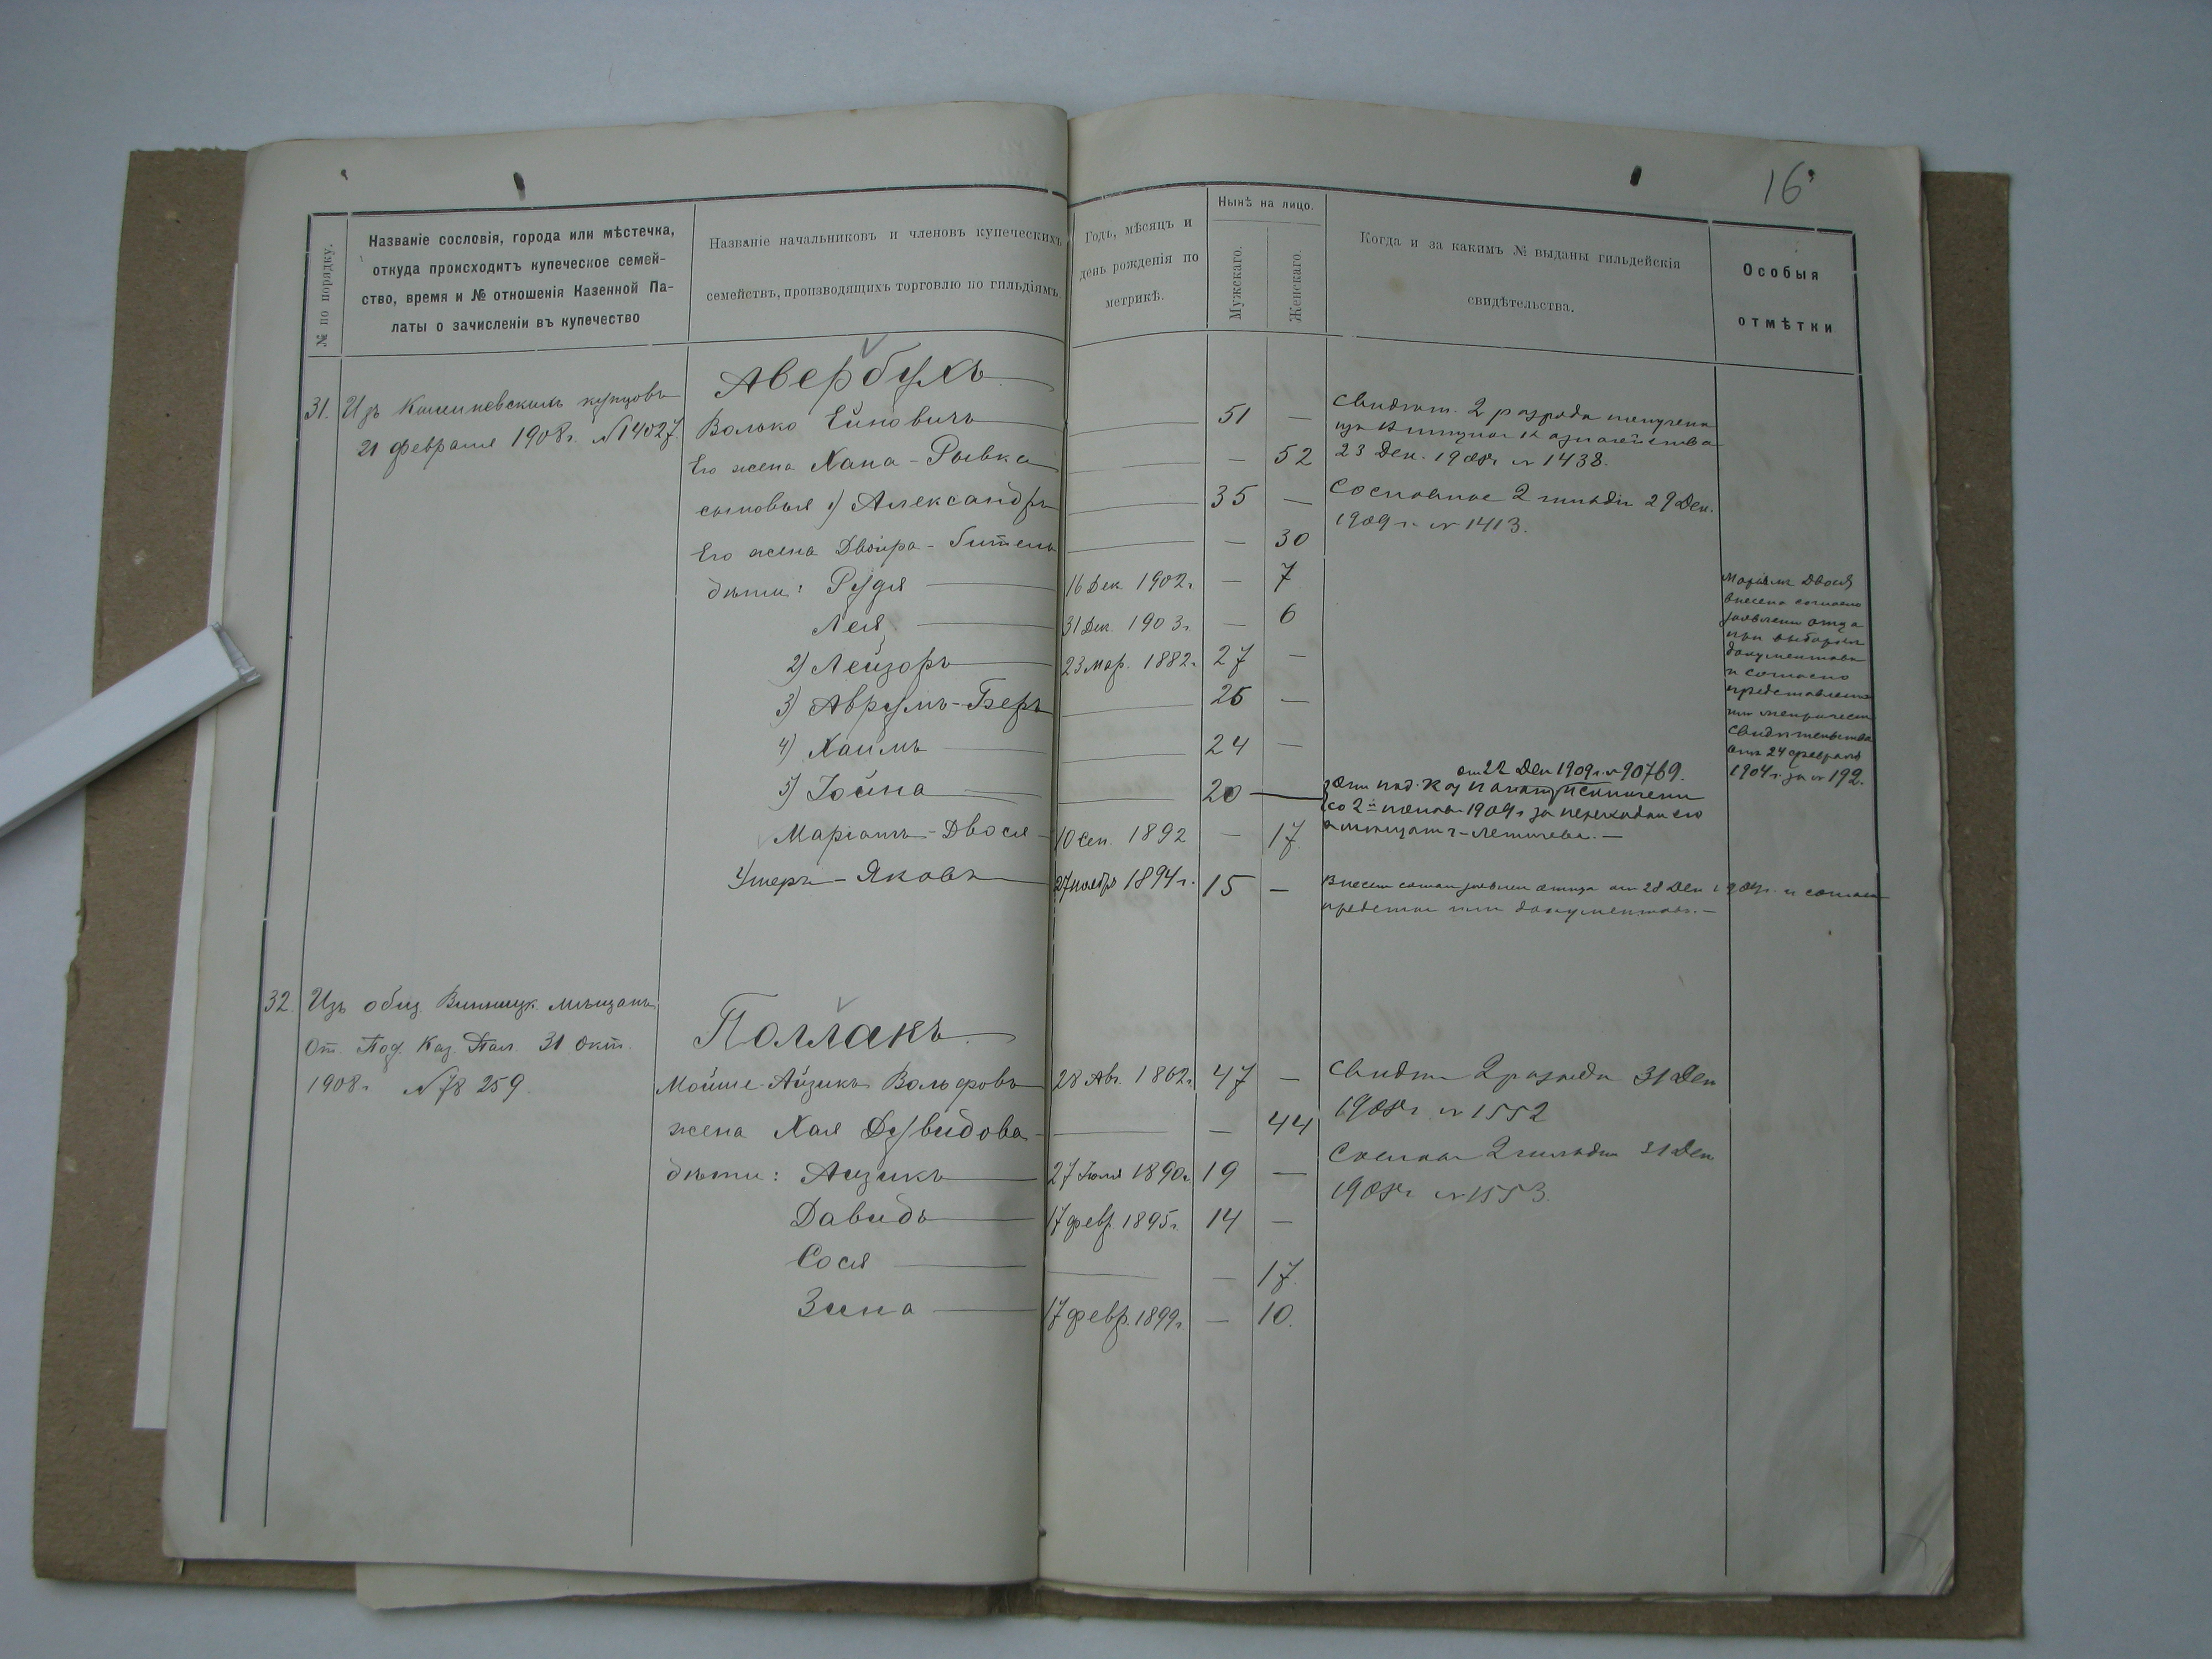 16
№ по порядку.
Названіе сословія, города или мѣстечка,
откуда происходитъ купеческое семей-
ство, время и № отношенія Казенной Па-
латы о зачисленіи въ купечество
Названіе начальниковъ и членовъ купеческихъ
семействъ, производящихъ торговлю по гильдіямъ
Годъ, мѣсяцъ и
день рожденія по
метрикѣ.
Нынѣ на лицо.
Мужскаго.
Женскаго.
Когда и за какимъ № выданы гильдейскія
свидѣтельства.
Особыя
отмѣтки
31. Изъ Кишиневскихъ купцовъ
21 февраля 1908 г. № 14027
Авербухъ
Волько Ейновичъ — 51 —
Его жена Хана-Рывка — — 52
сыновья 1) Александръ — 35 —
Его жена Двойра- — — 30
дѣти: Рудя — 16 Дек. 1902 г. — 7
Лея — 31 Дек. 1903 г. — 6
2) Лейзоръ — 23 мар. 1882 г. 27 —
3) Аврумъ-Беръ — 26 —
4) Хаимъ — 24 —
5) Іойна — 20 —
Маріамъ-Двося — 10 сен. 1892 — 17
Яковъ — 27 ноября 1894 г. 15 —
Свидѣт. 2 разряда
23 Дек. 1908 г. № 1438.
Сословное 2 гильдіи 29 Дек.
1909 г. № 1413.
от 22 Дек 1909 г. № 90769.
со 2й 1909 г. за
отца от 28 Дек и
документовъ. —
Маріамъ Двося
внесена согласно
отца
при
документовъ
и согласно
24 февраля
1904 г. за № 192.
32. Изъ общ. Винницк. мѣщанъ
От. Под. Каз. Пал. 31 окт.
1908 г. № 78259.
Поллакъ
Мойше-Айзикъ Вольфовъ 28 Авг. 1862 г. 47 —
жена Хая Дувидова — — 44
дѣти: Аизикъ — 27 Іюля 1890 г. 19 —
Давидъ — 17 февр. 1895 г. 14 —
Сося — — 17.
Зина — 17 февр. 1899 г. — 10.
Свидѣт 2 разряда 31 Дек
1908 г. № 1552
Сослов 2 гильдіи 31 Дек
1908 г. № 1553.